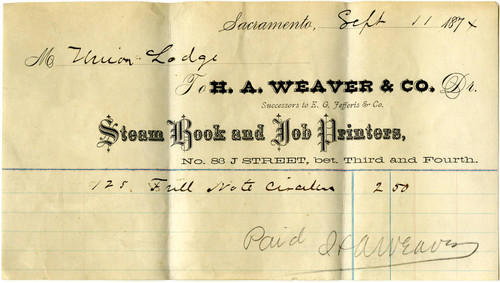 Sacramento, Sept 11 1874
M Union Lodge
To H. A. WEAVER & CO. Dr.
Successors to E. G. Jefferis & Co.
Steam Book and Job Printers,
No. 86 J STREET, bet. Third and Fourth.
125 Full Note Circulars 2 50
Paid H A Weaver